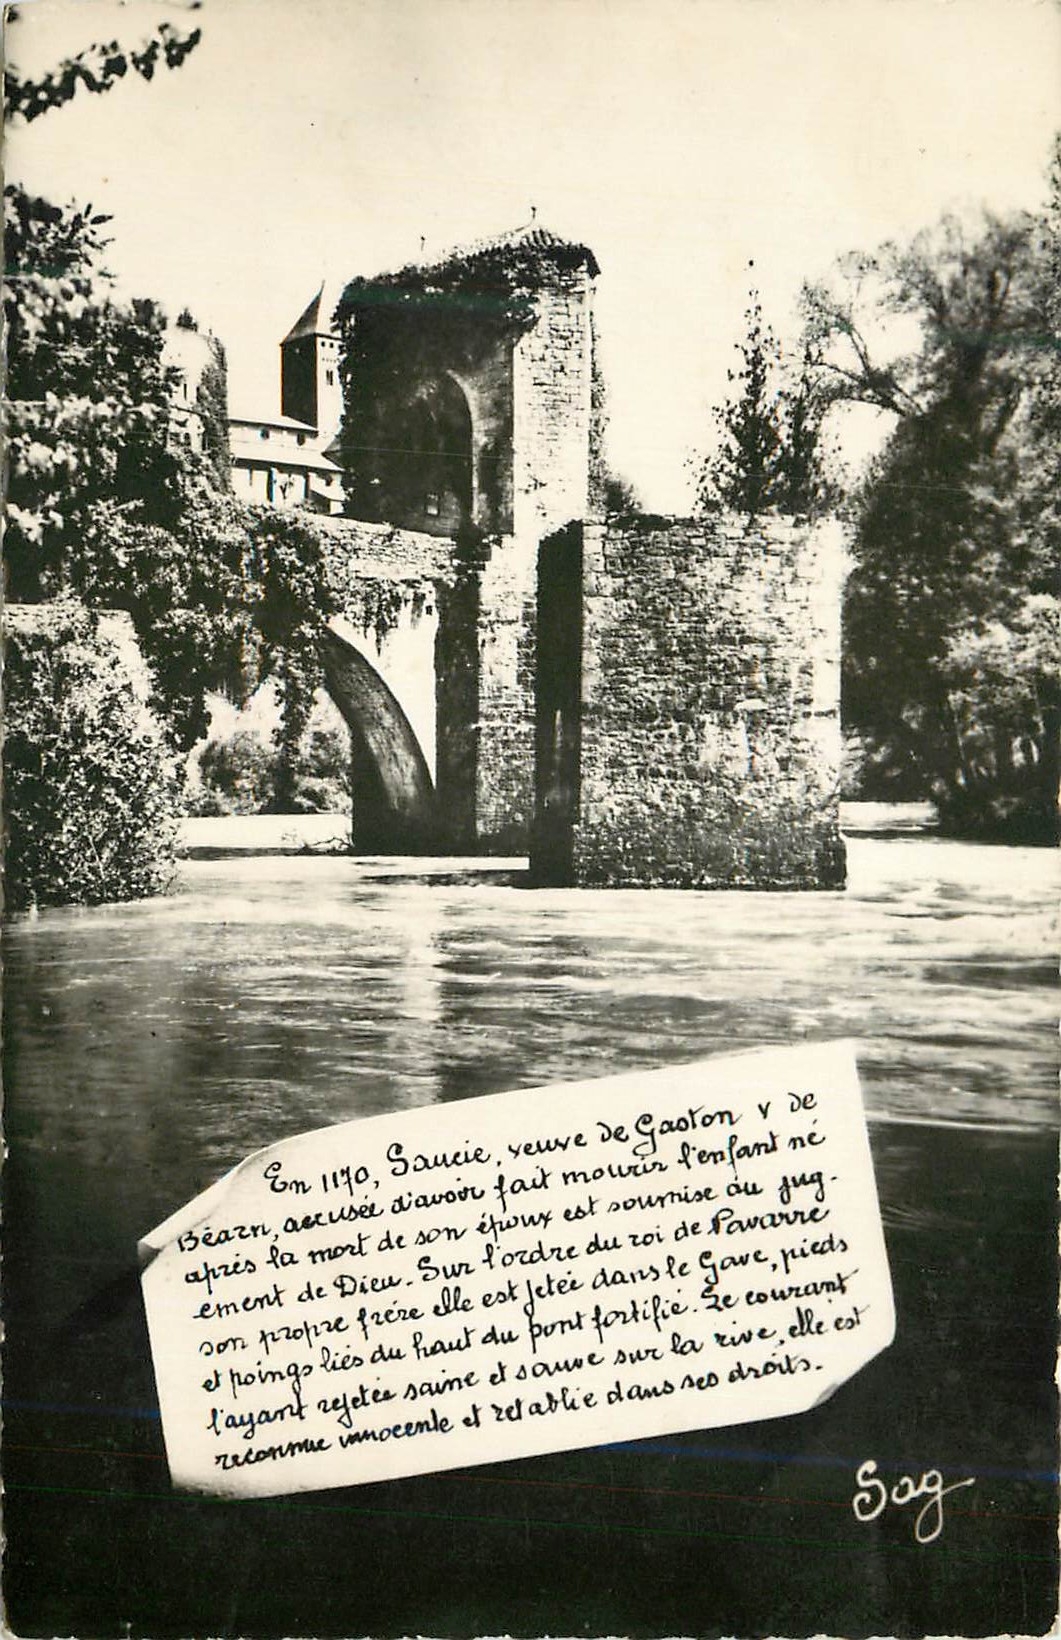 En 1170, Sancie, veuve de Gaston V de
Béarn, accusée d'avoir fait mourir l'enfant né
après la mort de son époux est soumise au jug-
ement de Dieu. Sur l'ordre du roi de Navarre
son propre frère elle est jetée dans le Gave, pieds
et poings liés du haut du pont fortifié. Le courant
l'ayant rejetée saine et sauve sur la rive, elle est
reconnue innocente et rétablie dans ses droits.
Sag